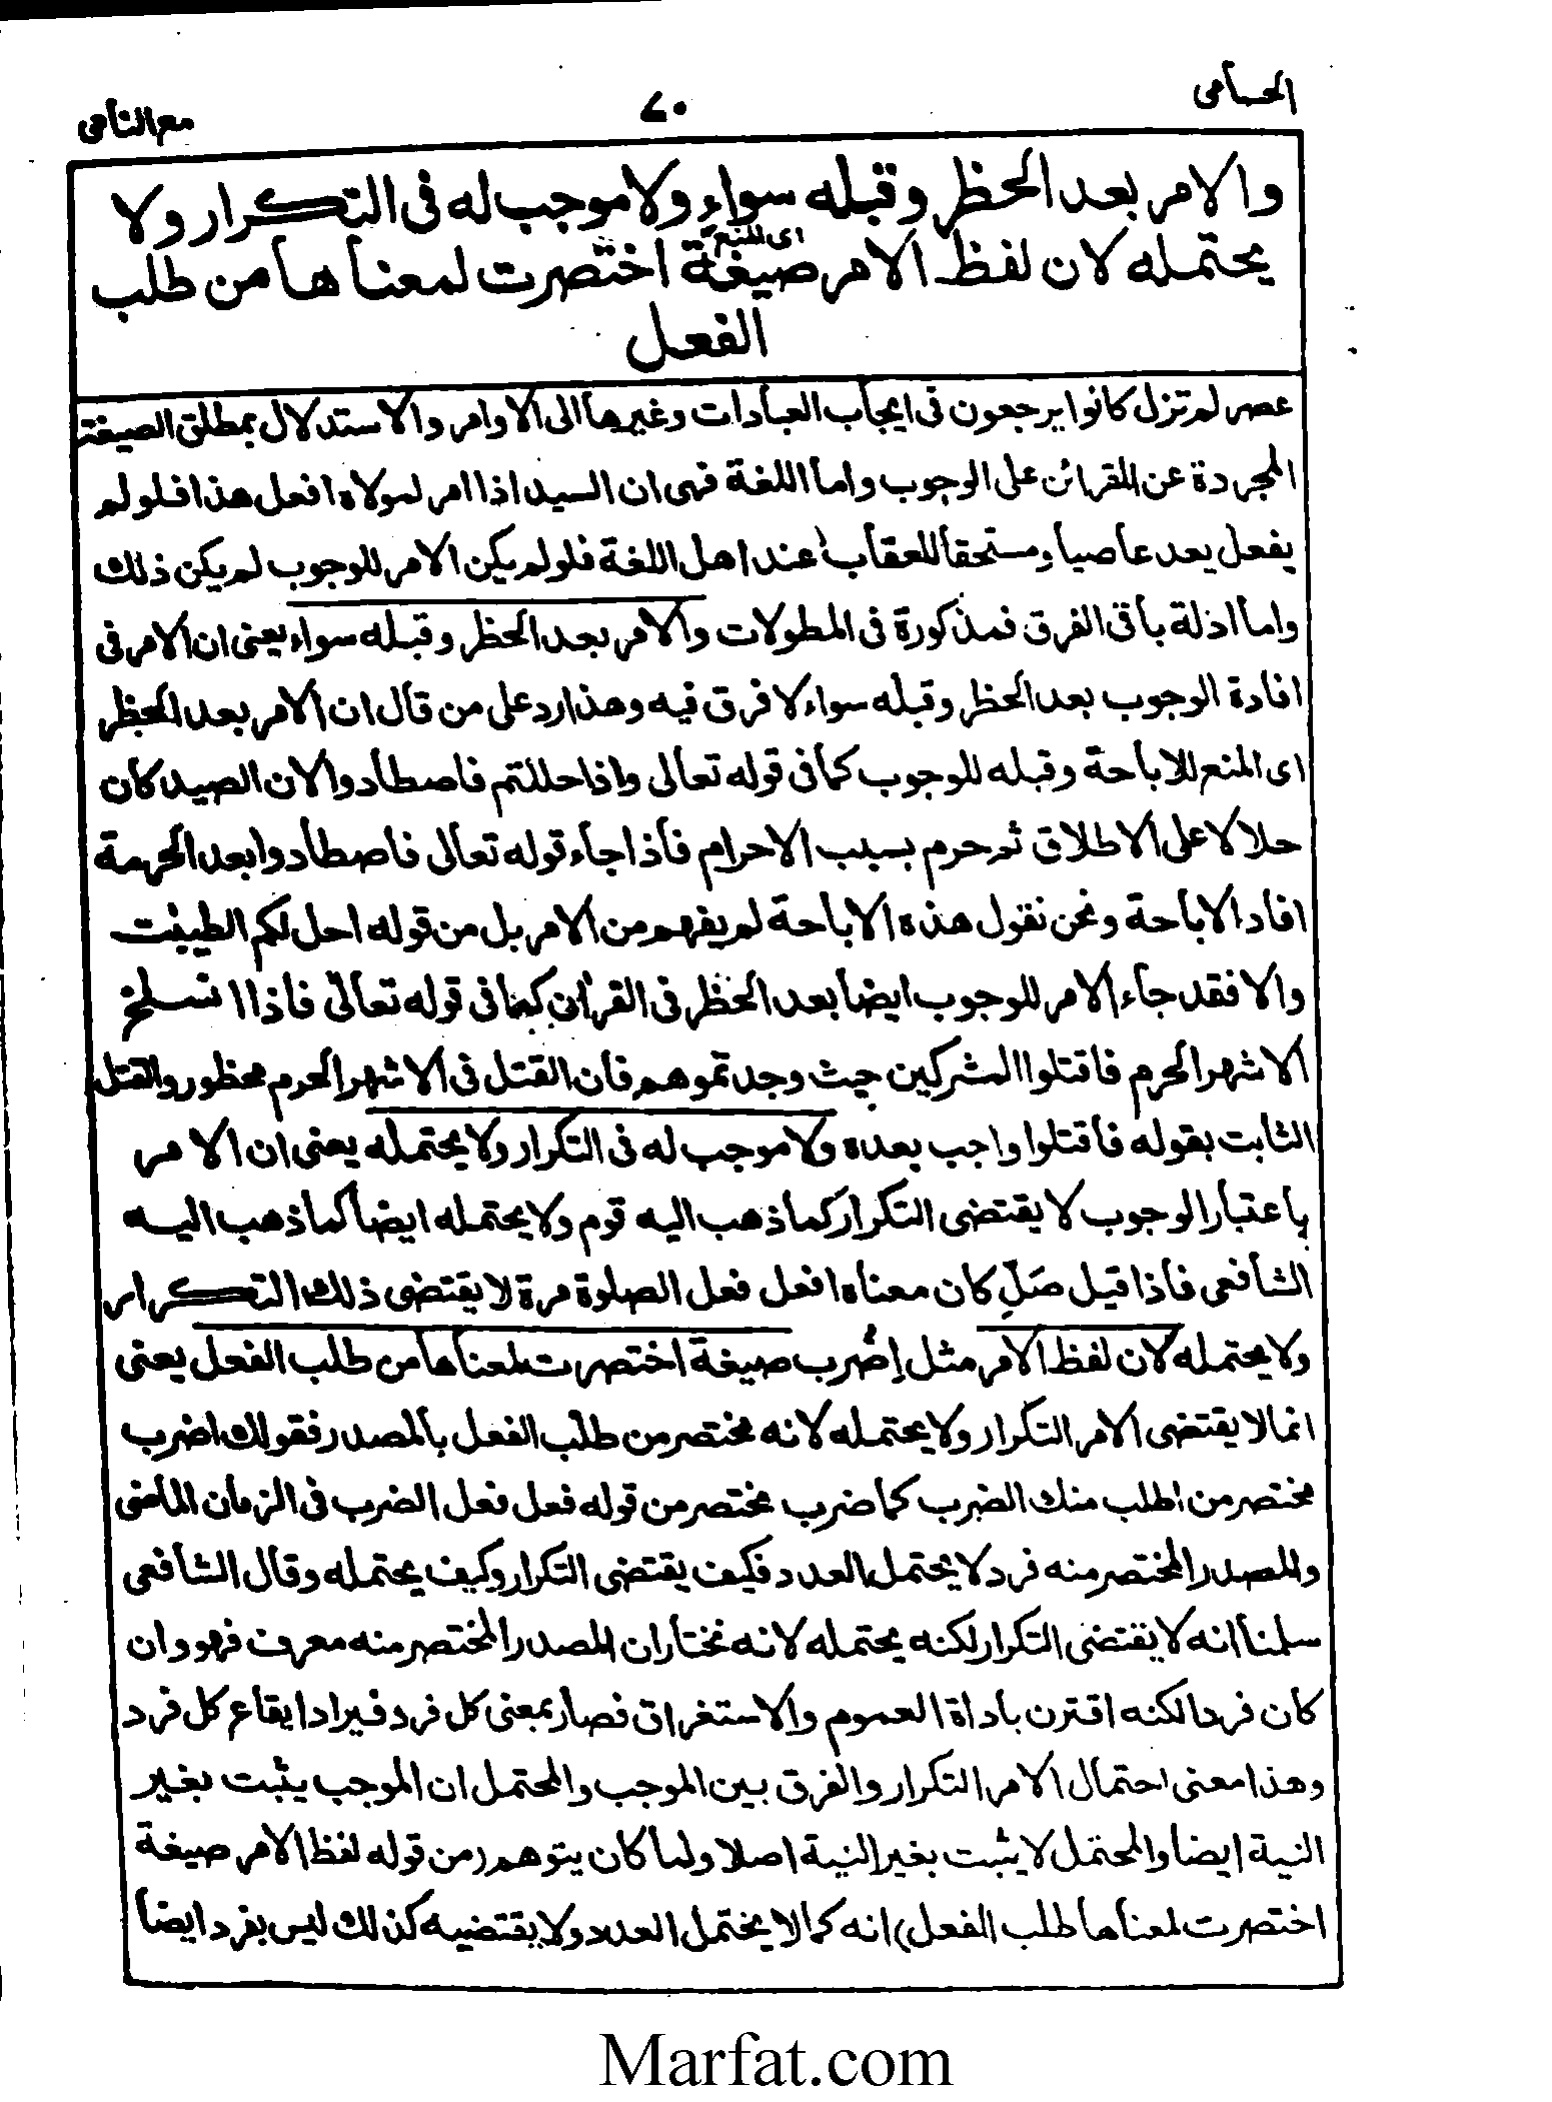 الحسامی
٧٠
مع النامی
والامر بعد الحظر وقبله سواء ولا موجب له فی التکرار ولا
ای المنع
یحتمله لان لفظ الامر صیغة اختصرت لمعناها من طلب
الفعل
عصر لم تزل کانوا یرجعون فی ایجاب العبادات وغیرها الی الاوامر والاستدلال بمطلق الصیغة
المجردة عن القرائن علی الوجوب واما اللغة فهی ان السید اذا امر لمولاه افعل هذا فلو لم
یفعل یعد عاصیا ومستحقا للعقاب عند اهل اللغة فلو لم یکن الامر للوجوب لم یکن ذلك
واما ادلة باقی الفرق فمذکورة فی المطولات والامر بعد الحظر وقبله سواء یعنی ان الامر فی
افادة الوجوب بعد الحظر وقبله سواء لا فرق فیه وهذا رد علی من قال ان الامر بعد الحظر
ای المنع للاباحة وقبله للوجوب کما فی قوله تعالی واذا حللتم فاصطادوا لان الصید کان
حلالا علی الاطلاق ثم حرم بسبب الاحرام فاذا جاء قوله تعالی فاصطادوا بعد الحرمة
افاد الاباحة ونحن نقول هذه الاباحة لم یفهم من الامر بل من قوله احل لکم الطیبٰت
والا فقد جاء الامر للوجوب ایضا بعد الحظر فی القراٰن کما فی قوله تعالیٰ فاذا انسلخ
الاشهر الحرم فاقتلوا المشرکین حیث وجدتموهم فان القتل فی الاشهر الحرم محظور والقتل
الثابت بقوله فاقتلوا واجب بعده ولا موجب له فی التکرار ولا یحتمله یعنی ان الامر
باعتبار الوجوب لا یقتضی التکرار کما ذهب الیه قوم ولا یحتمله ایضا کما ذهب الیه
الشافعی فاذا قیل صَلِّ کان معناه افعل فعل الصلوة مرة لا یقتضی ذلك التکرار
ولا یحتمله لان لفظ الامر مثل اِضرب صیغة اختصرت لمعناها من طلب الفعل یعنی
انما لا یقتضی الامر التکرار ولا یحتمله لانه مختصر من طلب الفعل بالمصدر فقولك اضرب
مختصر من اطلب منك الضرب کما ضرب مختصر من قوله فعل فعل الضرب فی الزمان الماضی
والمصدر المختصر منه فرد لا یحتمل العدد فکیف یقتضی التکرار وکیف یحتمله وقال الشافعی
سلمنا انه لا یقتضی التکرار لکنه یحتمله لانه نختار ان المصدر المختصر منه معرف فهو وان
کان فردا لکنه اقترن باداة العموم والاستغراق فصار بمعنی کل فرد فیراد ایقاع کل فرد
وهذا معنی احتمال الامر التکرار والفرق بین الموجب والمحتمل ان الموجب یثبت بغیر
النیة ایضا والمحتمل لا یثبت بغیر النیة اصلا ولما کان یتوهم (من قوله لفظ الامر صیغة
اختصرت لمعناها طلب الفعل) انه کما لا یحتمل العدد ولا یقتضیه کذلك لیس بفرد ایضا
Marfat.com